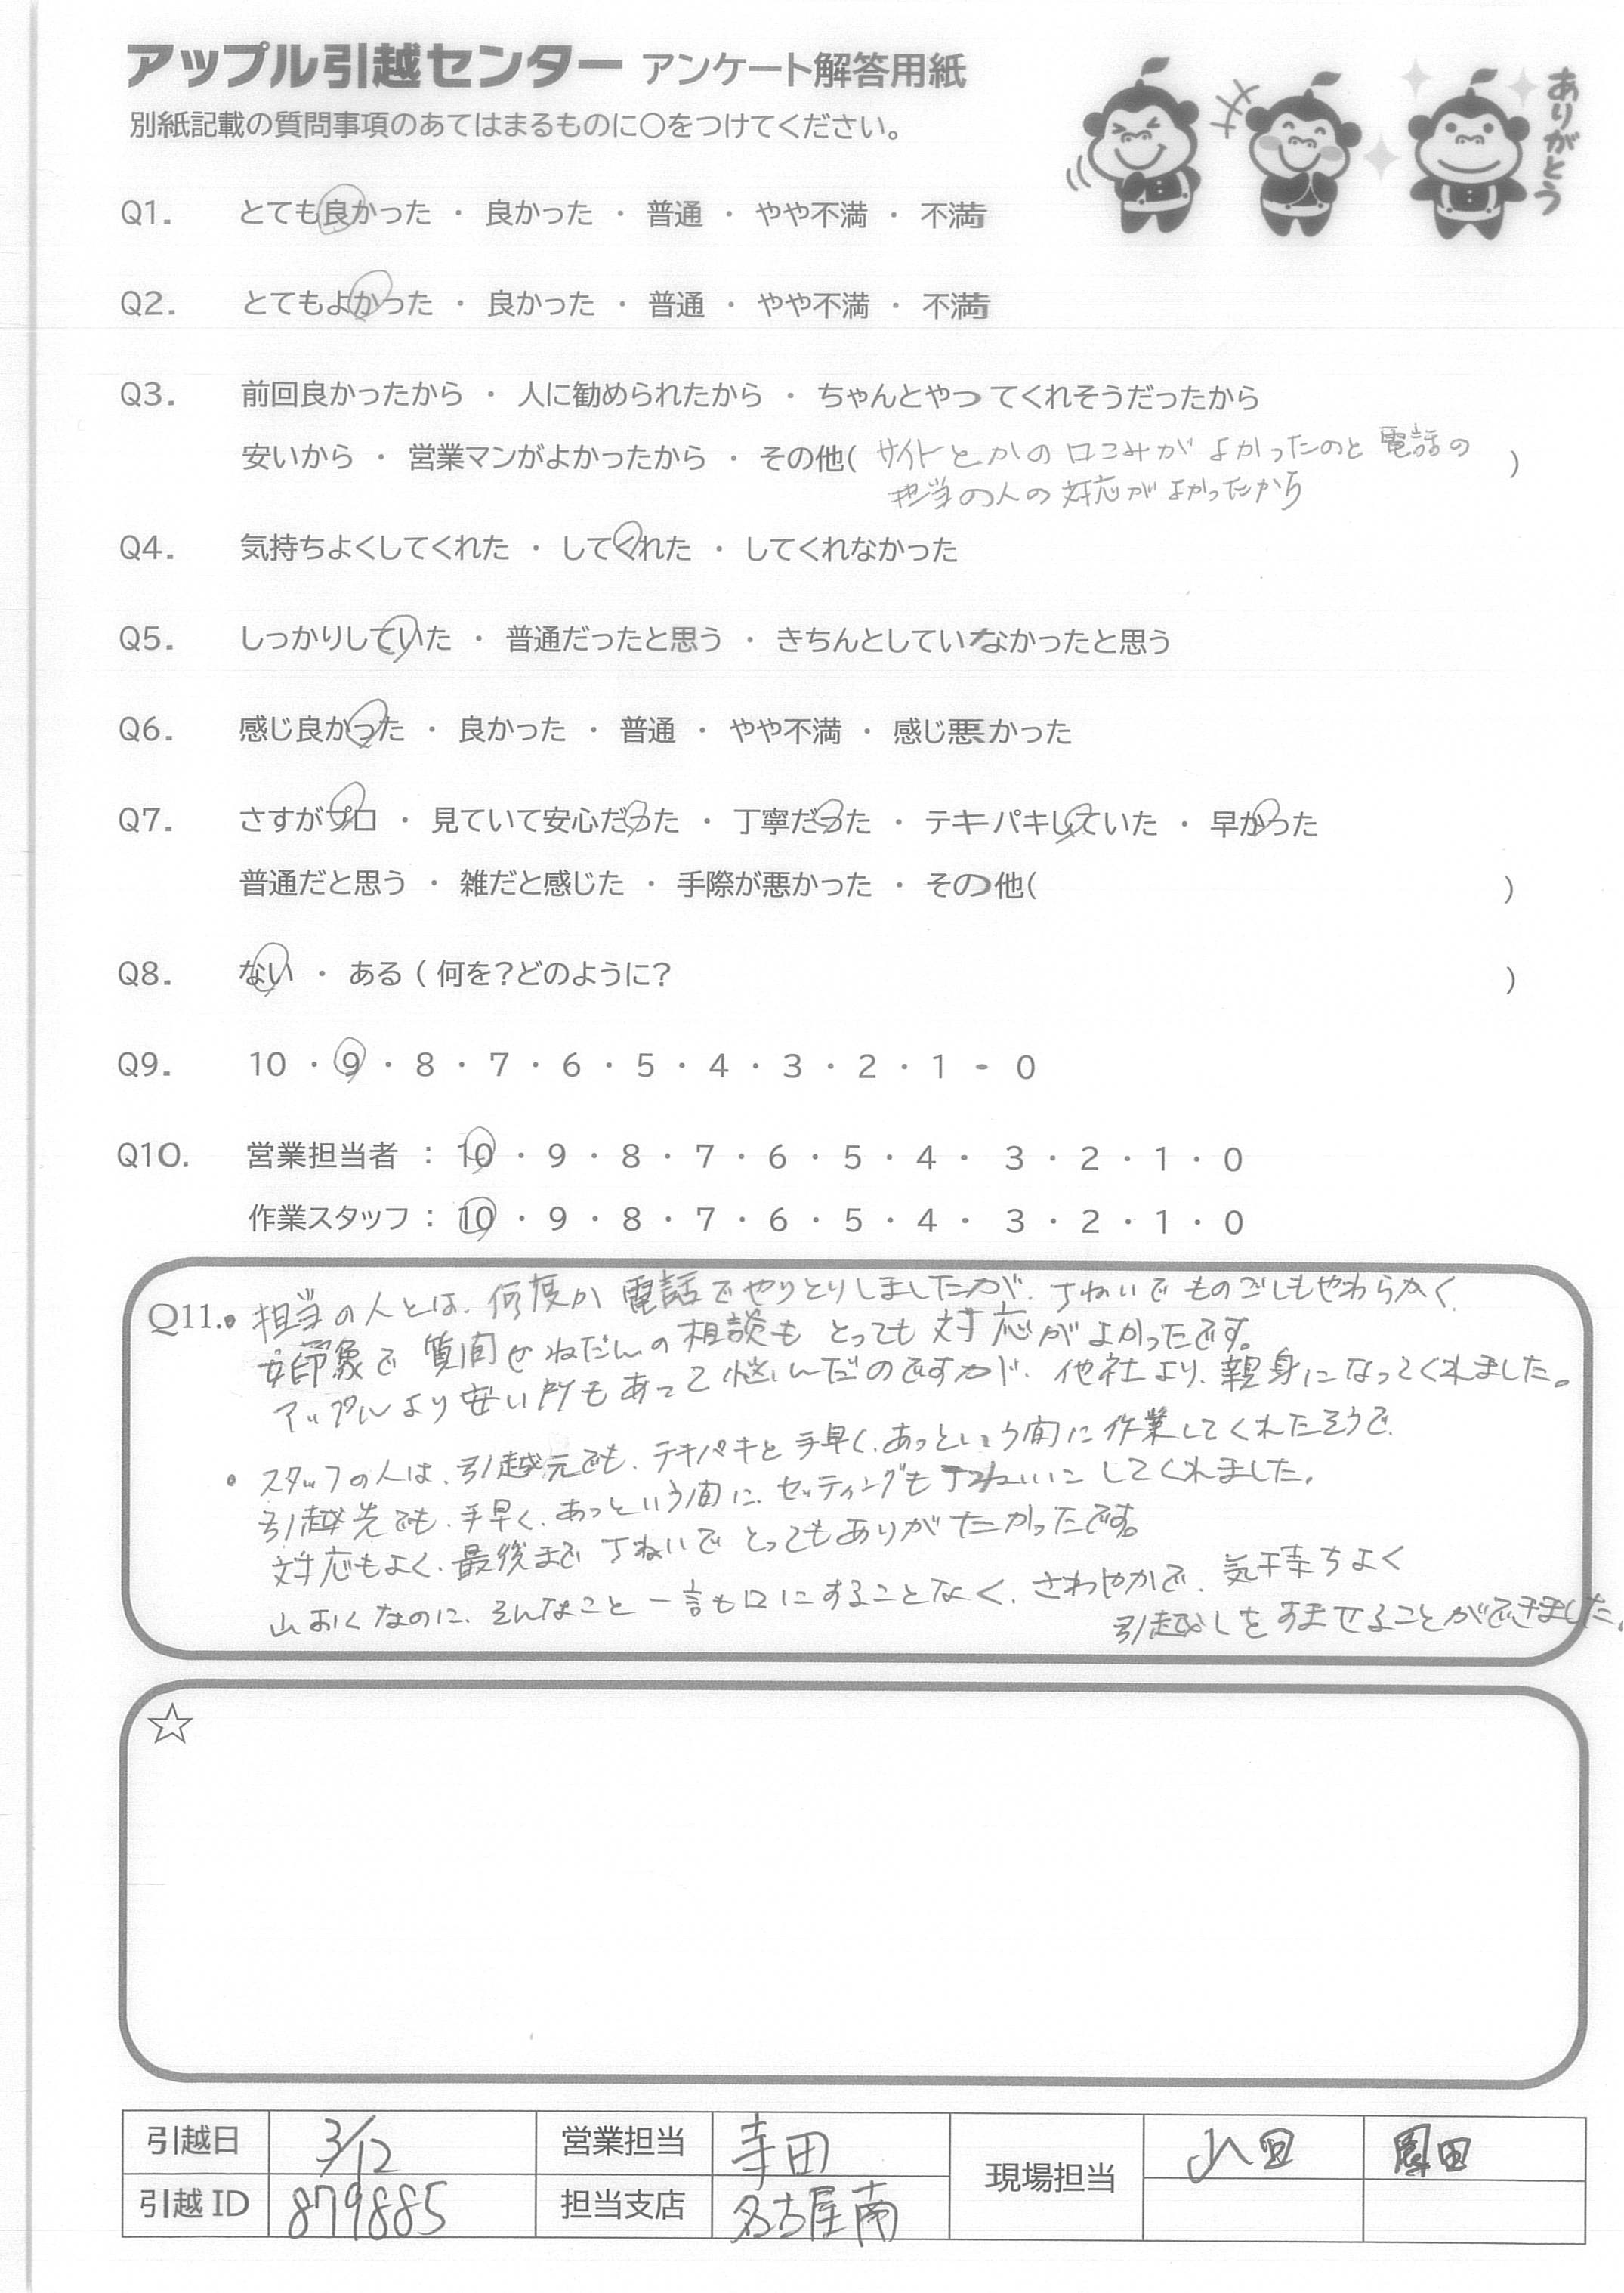 アップル引越センター アンケート解答用紙
別紙記載の質問事項のあてはまるものに〇をつけてください。
ありがとう
Q1. とても良かった ・ 良かった ・ 普通 ・ やや不満 ・ 不満
Q2. とてもよかった ・ 良かった ・ 普通 ・ やや不満 ・ 不満
Q3. 前回良かったから ・ 人に勧められたから ・ ちゃんとやってくれそうだったから
安いから ・ 営業マンがよかったから ・ その他( サイトとかの口コミが よかったのと 電話の )
担当の人の対応がよかったから
Q4. 気持ちよくしてくれた ・ してくれた ・ してくれなかった
Q5. しっかりしていた ・ 普通だったと思う ・ きちんとしていなかったと思う
Q6. 感じ良かった ・ 良かった ・ 普通 ・ やや不満 ・ 感じ悪かった
Q7. さすがプロ ・ 見ていて安心だった ・ 丁寧だった ・ テキパキしていた ・ 早かった
普通だと思う ・ 雑だと感じた ・ 手際が悪かった ・ その他( )
Q8. ない ・ ある ( 何を?どのように? )
Q9. 10 ・ 9 ・ 8 ・ 7 ・ 6 ・ 5 ・ 4 ・ 3 ・ 2 ・ 1 ・ 0
Q10. 営業担当者 : 10 ・ 9 ・ 8 ・ 7 ・ 6 ・ 5 ・ 4 ・ 3 ・ 2 ・ 1 ・ 0
作業スタッフ : 10 ・ 9 ・ 8 ・ 7 ・ 6 ・ 5 ・ 4 ・ 3 ・ 2 ・ 1 ・ 0
Q11. ・担当の人とは、何度か電話でやりとりしましたが、丁ねいで ものごしもやわらかく、
好印象で 質問や ねだんの相談も とっても 対応がよかったです。
アップルより安い所もあって悩んだのですが、他社より、親身になってくれました。
・スタッフの人は、引越元でも、テキパキと手早く、あっという間に作業してくれたそうで、
引越先でも、手早く、あっという間に、セッティングも丁ねいにしてくれました。
対応もよく、最後まで 丁ねいで とってもありがたかったです。
山おくなのに、そんなこと一言も口にすることなく、さわやかで、気持ちよく
引越しをすませることができました。
☆
引越日 3/12 営業担当 寺田 現場担当 園田
引越ID 879885 担当支店 名古屋南